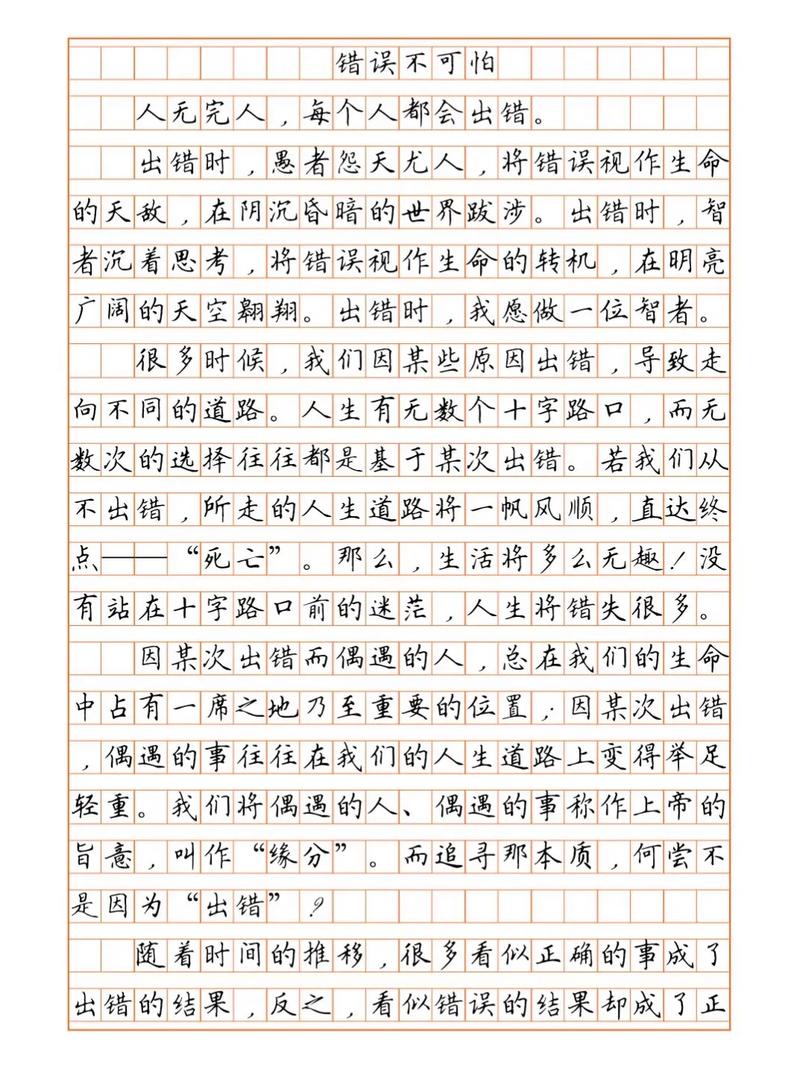 错误不可怕
人无完人，每个人都会出错。
出错时，愚者怨天尤人，将错误视作生命
的天敌，在阴沉昏暗的世界跋涉。出错时，智
者沉着思考，将错误视作生命的转机，在明亮
广阔的天空翱翔。出错时，我愿做一位智者。
很多时候，我们因某些原因出错，导致走
向不同的道路。人生有无数个十字路口，而无
数次的选择往往都是基于某次出错。若我们从
不出错，所走的人生道路将一帆风顺，直达终
点——“死亡”。那么，生活将多么无趣！没
有站在十字路口前的迷茫，人生将错失很多。
因某次出错而偶遇的人，总在我们的生命
中占有一席之地乃至重要的位置；因某次出错
，偶遇的事往往在我们的人生道路上变得举足
轻重。我们将偶遇的人、偶遇的事称作上帝的
旨意，叫作“缘分”。而追寻那本质，何尝不
是因为“出错”？
随着时间的推移，很多看似正确的事成了
出错的结果，反之，看似错误的结果却成了正